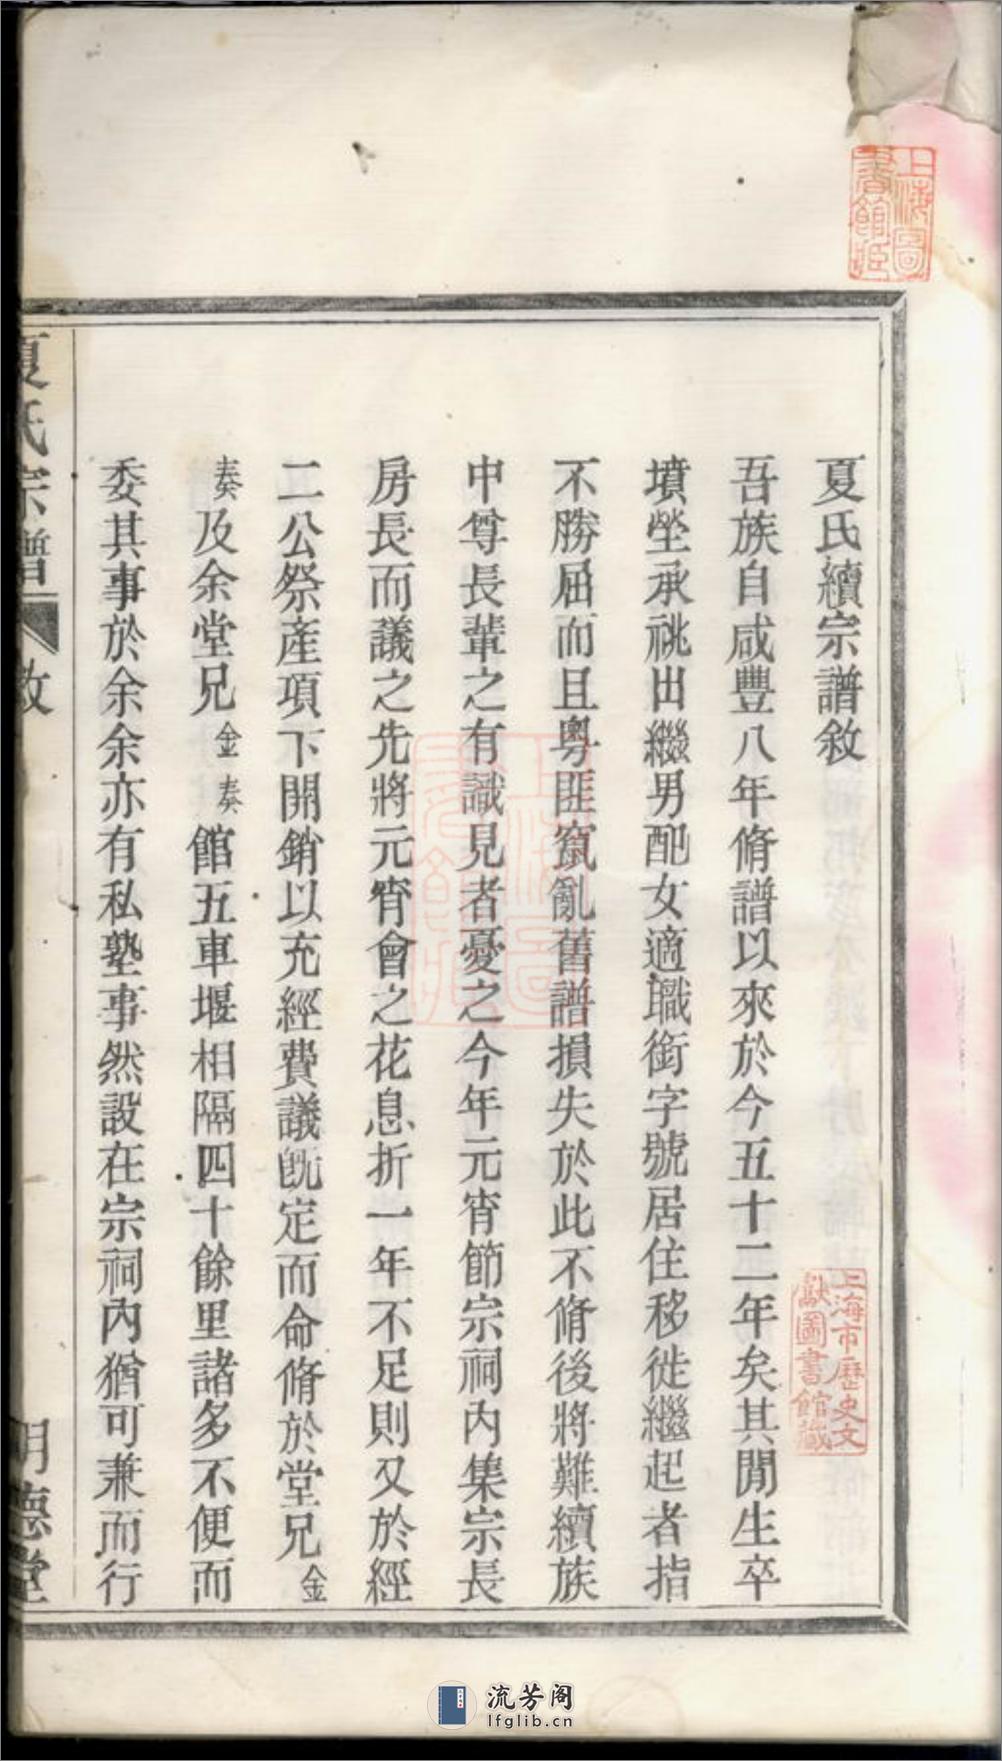 夏氏續宗譜敘
吾族自咸豐八年脩譜以來於今五十二年矣其閒生卒
墳塋承祧出繼男配女適職銜字號居住移徙繼起者指
不勝屈而且粵匪竄亂舊譜損失於此不脩後將難續族
中尊長輩之有識見者憂之今年元宵節宗祠內集宗長
房長而議之先將元宵會之花息折一年不足則又於經
二公祭產項下開銷以充經費議旣定而命脩於堂兄金
奏及余堂兄金奏館五車堰相隔四十餘里諸多不便而
委其事於余余亦有私塾事然設在宗祠內猶可兼而行
夏氏宗譜
敘
明德堂
上海圖
書館
上海市歷史文
獻圖書館藏
流芳阁
lfglib.cn